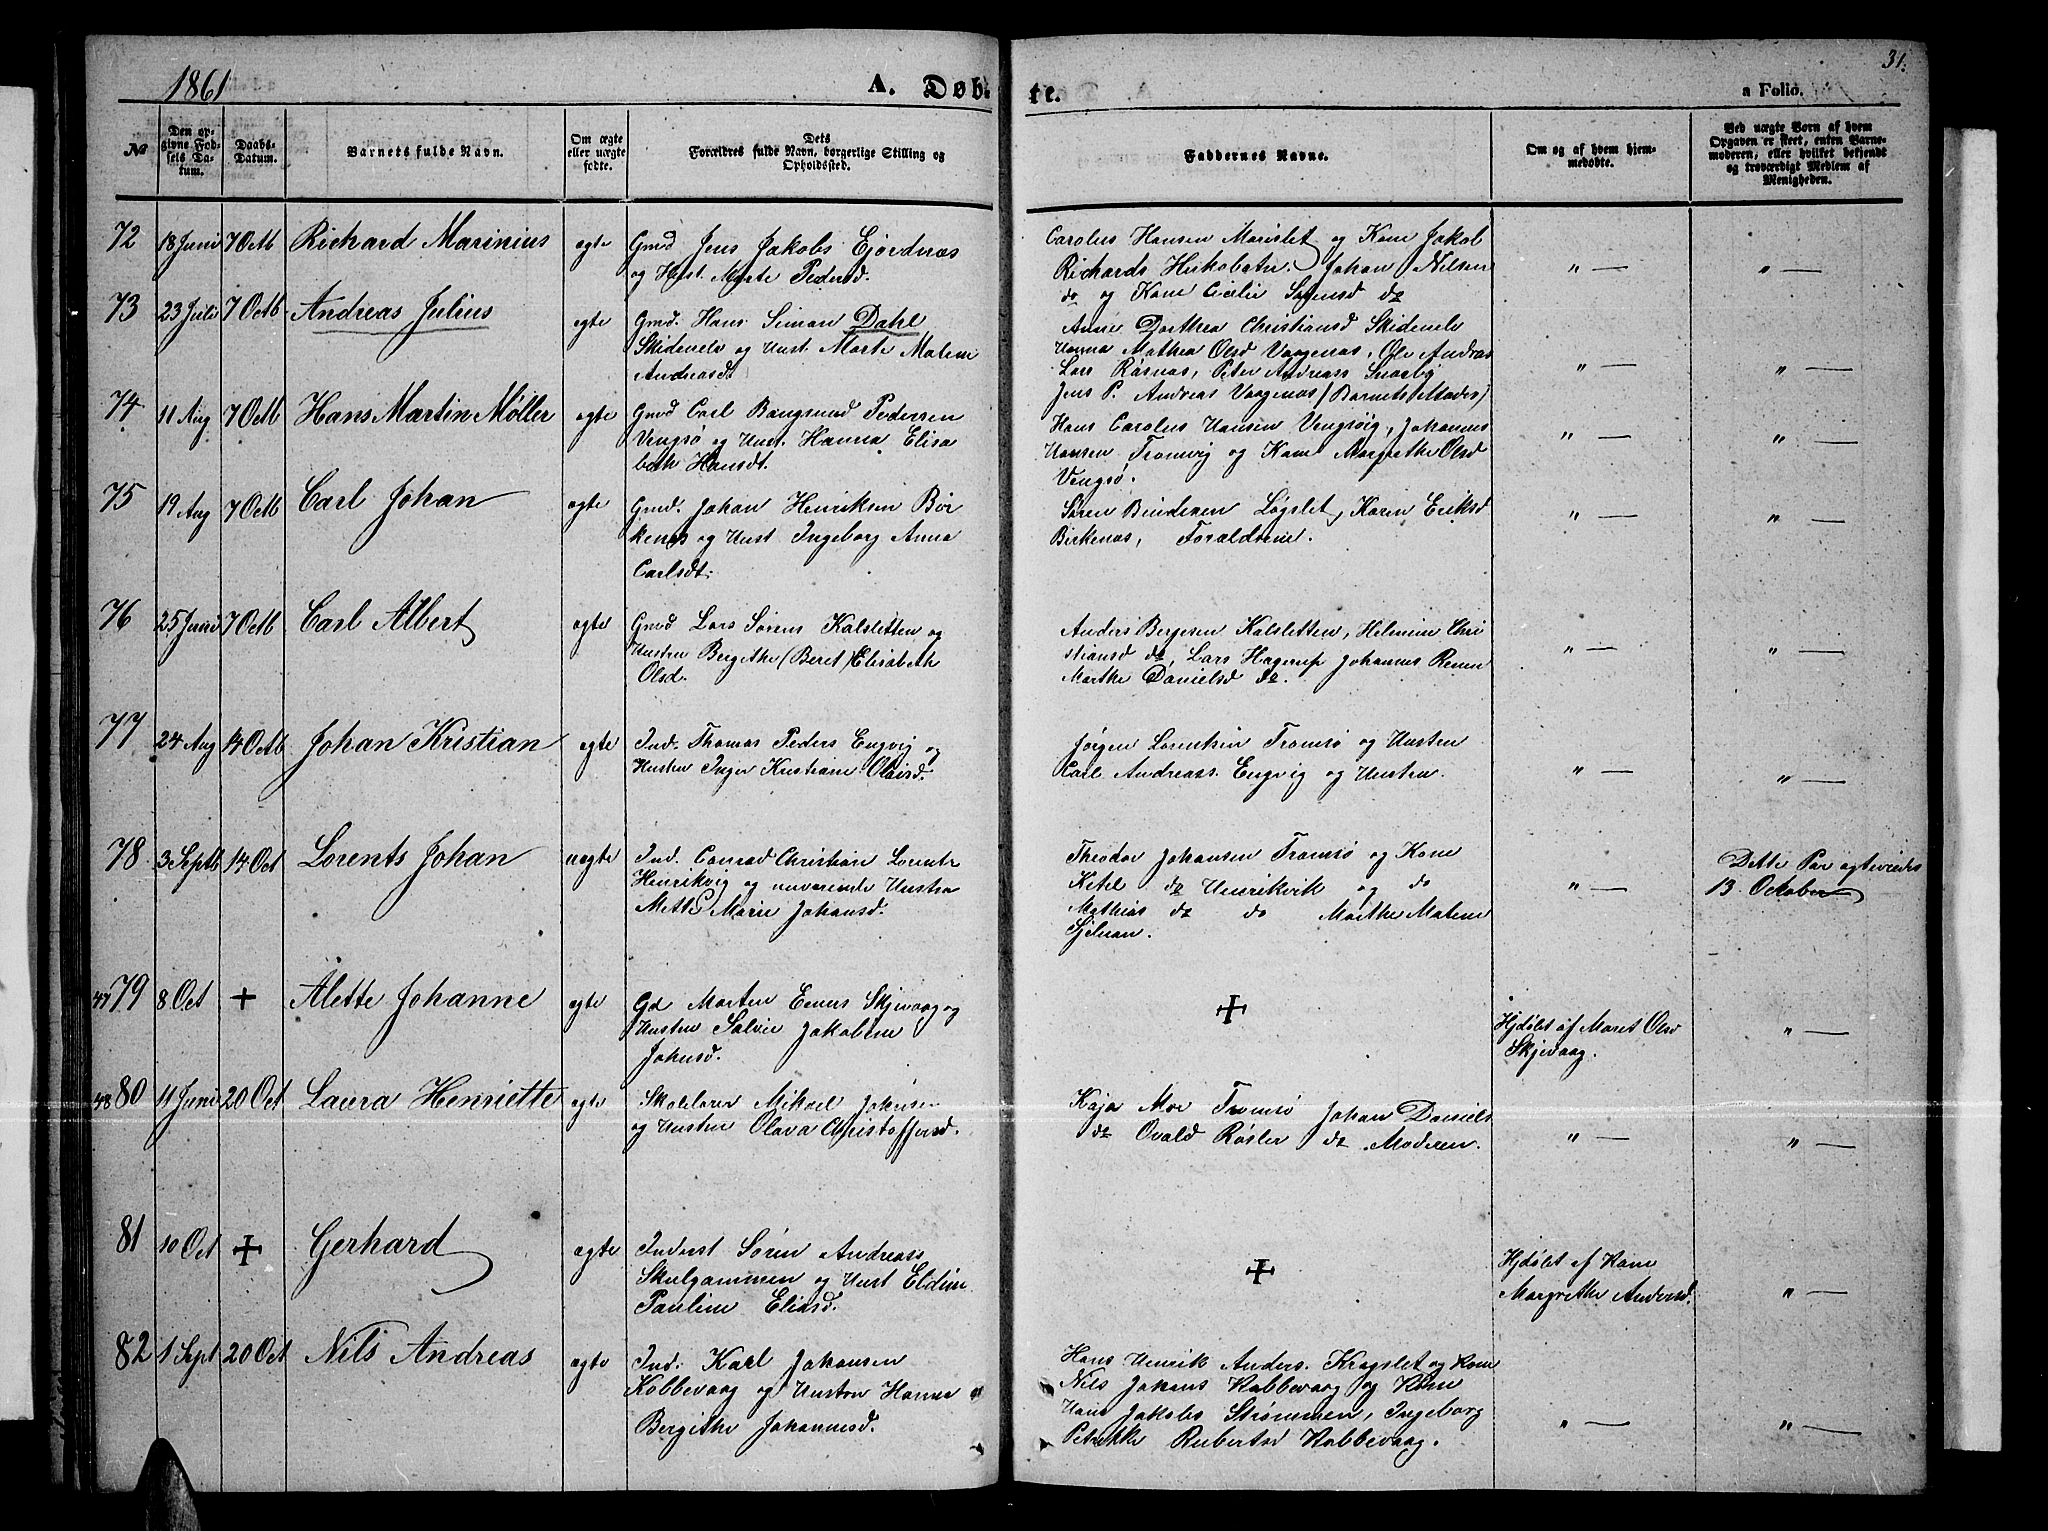 1861
A. Døb-
te.
31.
a Folio.
№
Den op-
givne Fød-
sels Da-
tum.
Daabs-
Datum.
Barnets fulde Navn.
Om ægte
eller uægte
fødte.
Dets
Forældres fulde Navn, borgerlige Stilling og
Opholdssted.
Faddernes Navne.
Om og af hvem hjem-
medøbte.
Ved uægte Børn af hvem
Opgaven er skeet, enten Barne-
moderen, eller hvilket bekjendt
og troværdigt Medlem af
Menigheden.
72
18 Juni
7 Octb
Richard Marinius
ægte
Gmd Jens Jakobs Ejordnæs
og Hust. Marte Pedersd.
Carolus Hansen Marislet og Kone Jakob
Richards Johan Nilsen
do og Kone Cicilie Sørensd do
" —
" —
73
23 Juli
7 Octb
Andreas Julius
ægte
Gmd. Hans Simon Dahl
Skidenelv og Hust. Marte Malene
Andreasdt
Anne Dorthea Christiansd Skidenelv
Hanna Mathea Olsd Vaagenæs, Ole Andreas
Lars Røsnæs, Peter Andreas Snarby
Jens P. Andreas Vaagenæs (Barnets Moder)
" —
" —
74
11 Aug
7 Octb
Hans Martin Møller
ægte
Gmd Carl Bangsund Pedersen
Vengsø og Hust. Hanna Elisa
beth Hansdt.
Hans Carolus Hansen Vengsøig, Johannes
Hansen Tromvig og Kone Margrethe Olsd
Vengsø.
" —
" —
75
19 Aug
7 Octb
Carl Johan
ægte
Gmd. Johan Henriksen Bør
kenæs og Hust Ingeborg Anna
Carlsdt.
Søren Bendixen Løgslet, Karen Eriksd
Birkenæs, Forældrene.
" —
" —
76
25 Juni
7 Octb
Carl Albert
ægte
Gmd Lars Sørens Kalsletten og
Hustru Bergithe (Beret) Elisabeth
Olsd.
Anders Bergesen Kalsletten, Helmine Chri
stiansd do, Lars Hagerup Johannes Renen
Marthe Danielsd do.
" —
" —
77
24 Aug
14 Octb
Johan Kristian
ægte
Ind. Thomas Peders Engvig og
Hustru Inger Kristiane Olaisd.
Jørgen Lorentsen Tromsø og Hustru
Carl Andreass. Engvig og Hustru.
" —
" —
78
3 Septb
14 Oct
Lorents Johan
uægte
Ind. Conrad Christian Lorents
Henrikvig og nuværende Hustru
Mette Marie Johansd.
Theodor Johansen Tromsø og Kone
Ketel do Henrikvik og do
Mathias do do Marthe Malene
Sjelnan.
" —
Dette Par ægteviedes
13 October
47
79
8 Oct
+
Alette Johanne
ægte
Gd Morten Eners Skjevaag og
Hustru Salvie Jakobine
Johnsd.
+
Hjdøbt af Maret Olsd
Skjevaag.
" —
48
80
11 Juni
20 Oct
Laura Henriette
ægte
Skolelærer Mikael Johnsen
og Hustru Olava Christoffersd.
Kaja Moe Tromsø Johan Daniels
do Ovald Røsler do Moderen.
" —
" —
81
10 Oct
+
Gerhard
ægte
Inderst Søren Andreass.
Skulgammen og Hust Eldine
Pauline Eliasd.
+
Hjdøbt af Kone
Margrethe Andersd.
" —
82
1 Sept
20 Oct
Nils Andreas
ægte
Ind: Karl Johansen
Kobbevaag og Hustru Hanna
Bergithe Johannesd.
Hans Henrik Anders. Krogslet og Kone
Nils Johans Kobbevaag og Kone
Hans Jakobs Strømmen, Ingeborg
Petrikke Rubertsd Kobbevaag.
" —
" —